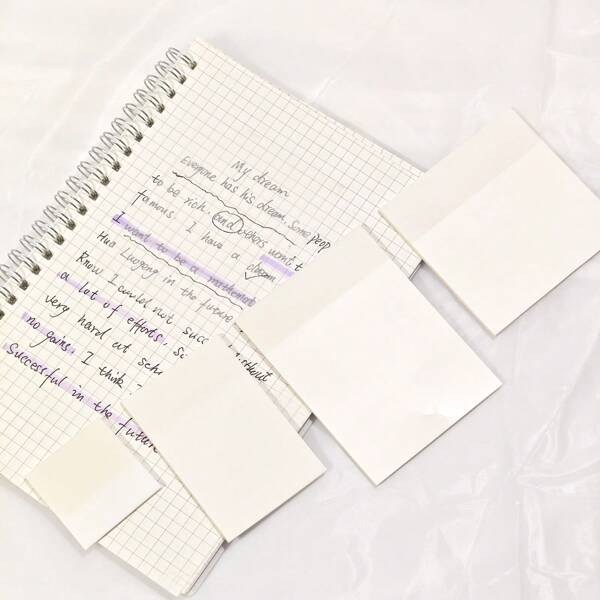 My dream
Everyone has his dream, some peop
to be rich, and others want t
famous. I have a dream
I want to be a mathemat
Hua Luogeng in the future
Know I could not succ
a lot of efforts. S without
very hard at sch
no gains. I think
Successful in the future